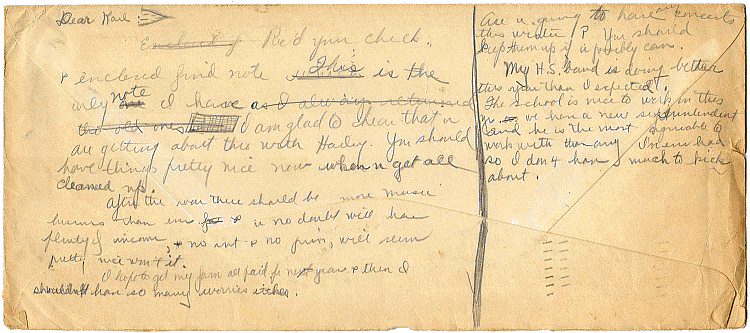 Dear Karl
Enclosed f Rec'd your check.
& enclosed find note This is the
only note I have as I always returned
the old ones I am glad to hear that u
are getting about thru with Harley. You should
have things pretty nice now when u get all
cleaned up.
After the war there should be more music
business than ever for & u no doubt will have
plenty of income, & no int & no prin, will seem
pretty nice won't it.
I hope to get my farm all paid for next year & then I
shouldn't have so many worries either.
Are u going to have any concerts
this winter? You should
keep them up if u possibly can.
My H.S. band is doing better
this year than I expected.
The school is nice to work in this
yr. we have a new superintendent
and he is the most agreeable to
work with than any I've ever had
so I don't have much to kick
about.